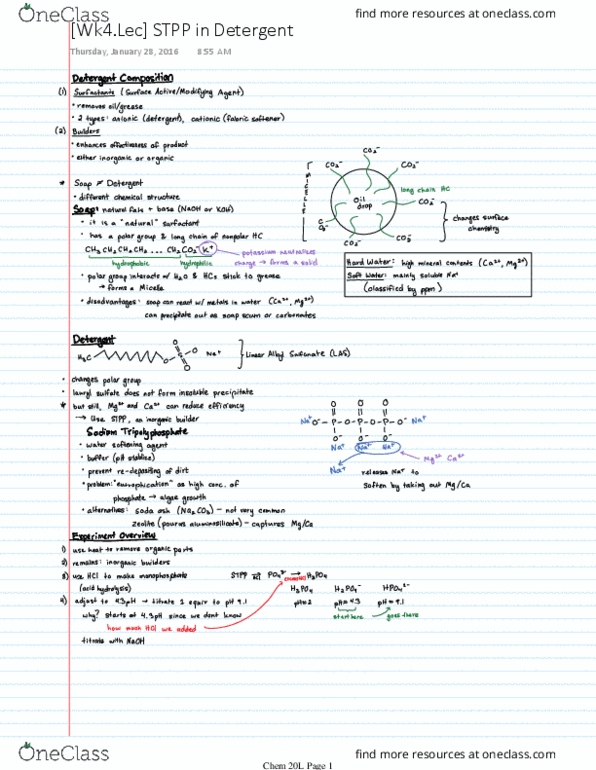 OneClass
find more resources at oneclass.com
[Wk4.Lec] STPP in Detergent
Thursday, January 28, 2016 8:55 AM
Detergent Composition
(1) Surfactants (Surface Active/Modifying Agent)
• removes oil/grease
• 2 types: anionic (detergent), cationic (fabric softener)
(2) Builders
• enhances effectiveness of product
• either inorganic or organic
* Soap ≠ Detergent
• different chemical structure
Soap: natural fats + base (NaOH or KOH)
• it is a "natural" surfactant
• has a polar group & long chain of nonpolar HC
CH3 CH2 CH2 CH2 ... CH2 CO2⁻ K⁺
hydrophobic hydrophilic
potassium neutralizes
charge → forms a solid
• polar group interacts w/ H2O & HCs stick to grease
→ forms a Micelle
• disadvantages: soap can react w/ metals in water (Ca²⁺, Mg²⁺)
can precipitate out as soap scum or carbonates
MICELLE
CO2⁻
CO2⁻
CO2⁻
long chain HC
CO2⁻
Oil
drop
CO2⁻
CO2⁻
CO2⁻
changes surface
chemistry
Hard Water: high mineral contents (Ca²⁺, Mg²⁺)
Soft Water: mainly soluble Na⁺
(classified by ppm)
Detergent
H3C O S O O O⁻ Na⁺
Linear Alkyl Sulfonate (LAS)
• changes polar group
• lauryl sulfate does not form insoluble precipitate
* but still, Mg²⁺ and Ca²⁺ can reduce efficiency
→ Use STPP, an inorganic builder
Sodium Tripolyphosphate
• water softening agent
• buffer (pH stabilize)
• prevent re-depositing of dirt
• problem: "eutrophication" as high conc. of
phosphate → algae growth
• alternatives: soda ash (Na2CO3) – not very common
zeolite (porous aluminosilicate) – captures Mg/Ca
O O O
Na⁺ O⁻–P–O–P–O–P–O⁻ Na⁺
O⁻ O⁻ O⁻
Na⁺ Na⁺ Na⁺
Mg²⁺ Ca²⁺
Na⁺
releases Na⁺ to
soften by taking out Mg/Ca
Experiment Overview
1) use heat to remove organic parts
2) remains: inorganic builders
3) use HCl to make monophosphate
(acid hydrolysis)
STPP → PO4³⁻ → H3PO4
H3PO4 H2PO4⁻ HPO4²⁻
pH=2 pH=4.3 pH=9.1
start here goes there
4) adjust to 4.3pH → titrate 1 equiv to pH 9.1
why? starts at 4.3pH since we dont know
how much HCl we added
titrate with NaOH
OneClass
find more resources at oneclass.com
Chem 20L Page 1